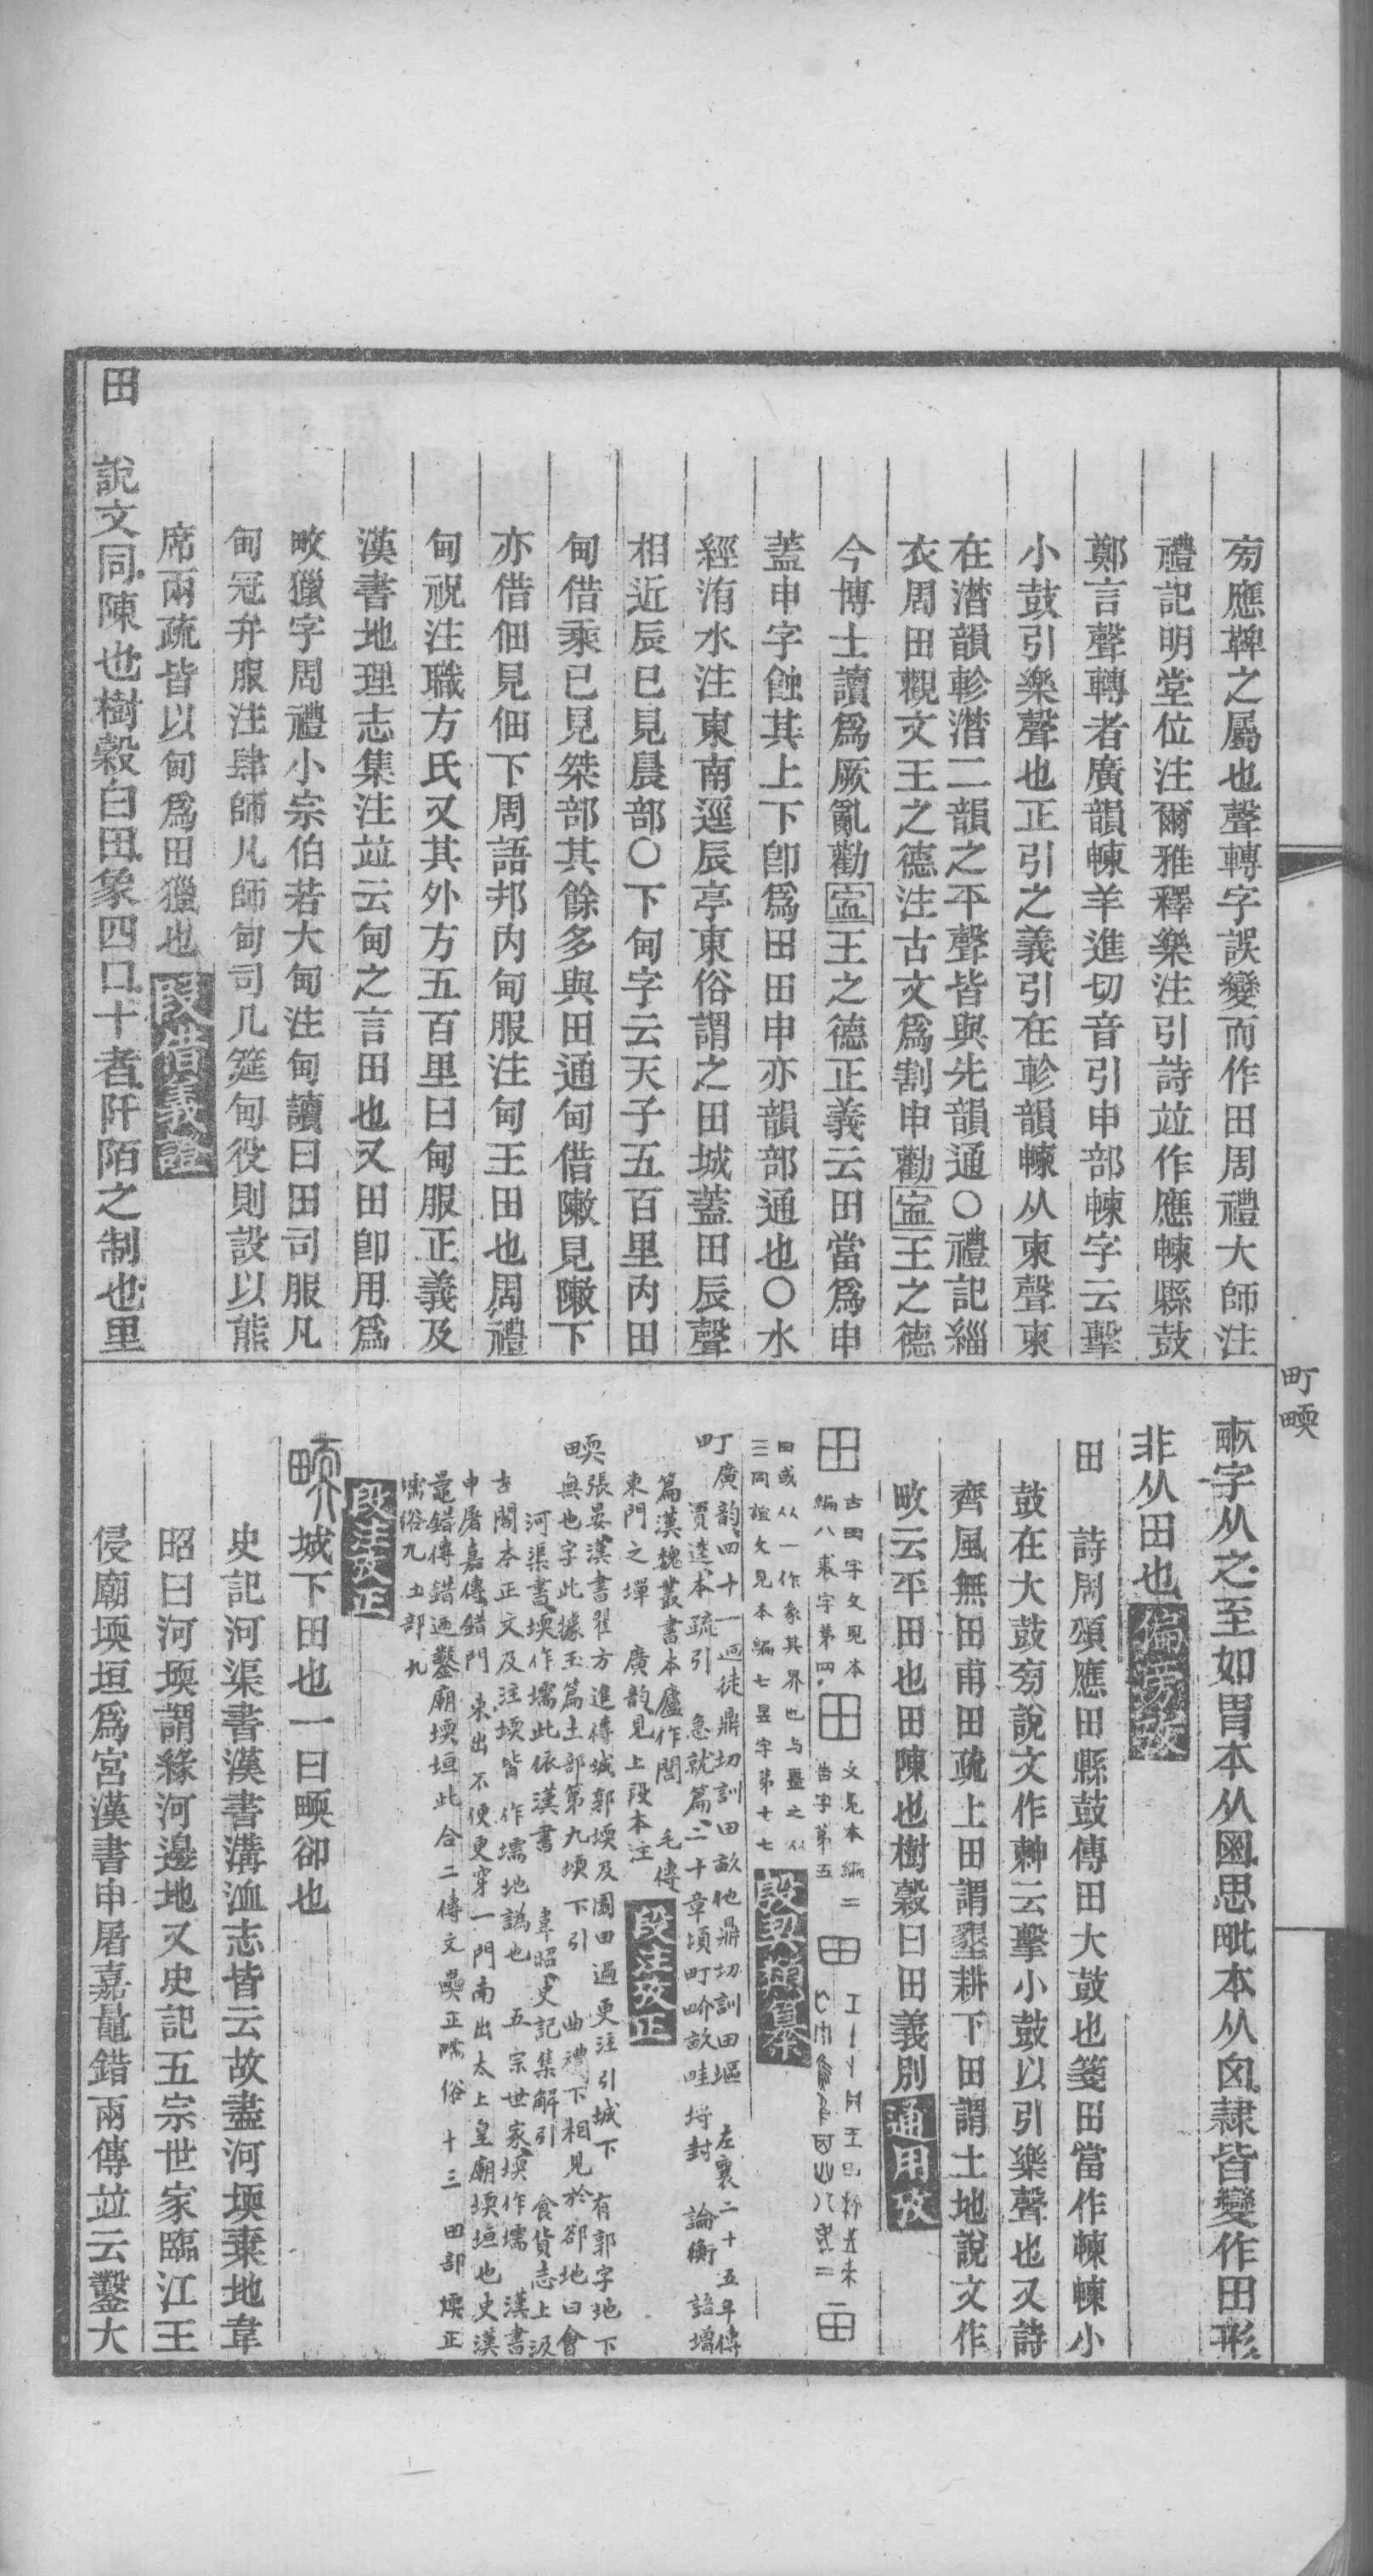 旁應鞞之屬也聲轉字誤變而作田周禮大師注
禮記明堂位注爾雅釋樂注引詩竝作應朄縣鼓
鄭言聲轉者廣韻朄羊進切音引申部朄字云擊
小鼓引樂聲也正引之義引在軫韻朄从柬聲柬
在潸韻軫潸二韻之平聲皆與先韻通○禮記緇
衣周田觀文王之德注古文爲割申勸寍王之德
今博士讀爲厥亂勸寍王之德正義云田當爲申
蓋申字蝕其上下卽爲田田申亦韻部通也○水
經洧水注東南逕辰亭東俗謂之田城蓋田辰聲
相近辰已見晨部○下甸字云天子五百里內田
甸借乘已見桀部其餘多與田通甸借敶見敶下
亦借佃見佃下周語邦內甸服注甸王田也周禮
甸祝注職方氏又其外方五百里曰甸服正義及
漢書地理志集注竝云甸之言田也又田卽用爲
畋獵字周禮小宗伯若大甸注甸讀曰田司服凡
甸冠弁服注肆師凡師甸司几筵甸役則設以熊
席兩疏皆以甸爲田獵也 段借義證
田 說文同陳也樹穀白田象四口十者阡陌之制也里
町畹
畞字从之至如胃本从囪思毗本从囟隸皆變作田形
非从田也 偏旁攷
田 詩周頌應田縣鼓傳田大鼓也箋田當作朄朄小
鼓在大鼓旁說文作朄云擊小鼓以引樂聲也又詩
齊風無田甫田疏上田謂墾耕下田謂土地說文作
畋云平田也田陳也樹穀曰田義別 通用攷
田 古田字文見本編八裘字第四 田 文見本編二告字第五
田或从一作象其界也与畺之从三同誼文見本編七昱字第十七 段契類纂
町 廣韵四十一迥徒鼎切訓田畝他鼎切訓田區 左襄二十五年傳
賈逵本疏引 急就篇二十章頃町畍畝畦埒封 論衡語增
篇漢魏叢書本廬作閭 毛傳
東門之墠 廣韵見上段本注 段注攷正
張晏漢書翟方進傳城郭堧及園田過更注引城下 有郭字地下
無也字此據玉篇土部第九堧下引 曲禮下相見於郤地曰會
河渠書堧作壖此依漢書 韋昭史記集解引 食貨志上汲
古閣本正文及注堧皆作壖地譌也 五宗世家堧作壖 漢書
申屠嘉傳錯門東出不便更穿一門南出太上皇廟堧垣也史漢
鼂錯傳錯迺鑿廟堧垣此合二傳文 奭正
壖俗九土部九 段注攷正
城下田也一曰畹郤也
史記河渠書漢書溝洫志皆云故盡河堧棄地韋
昭曰河堧謂緣河邊地又史記五宗世家臨江王
侵廟堧垣爲宮漢書申屠嘉鼂錯兩傳竝云鑿大